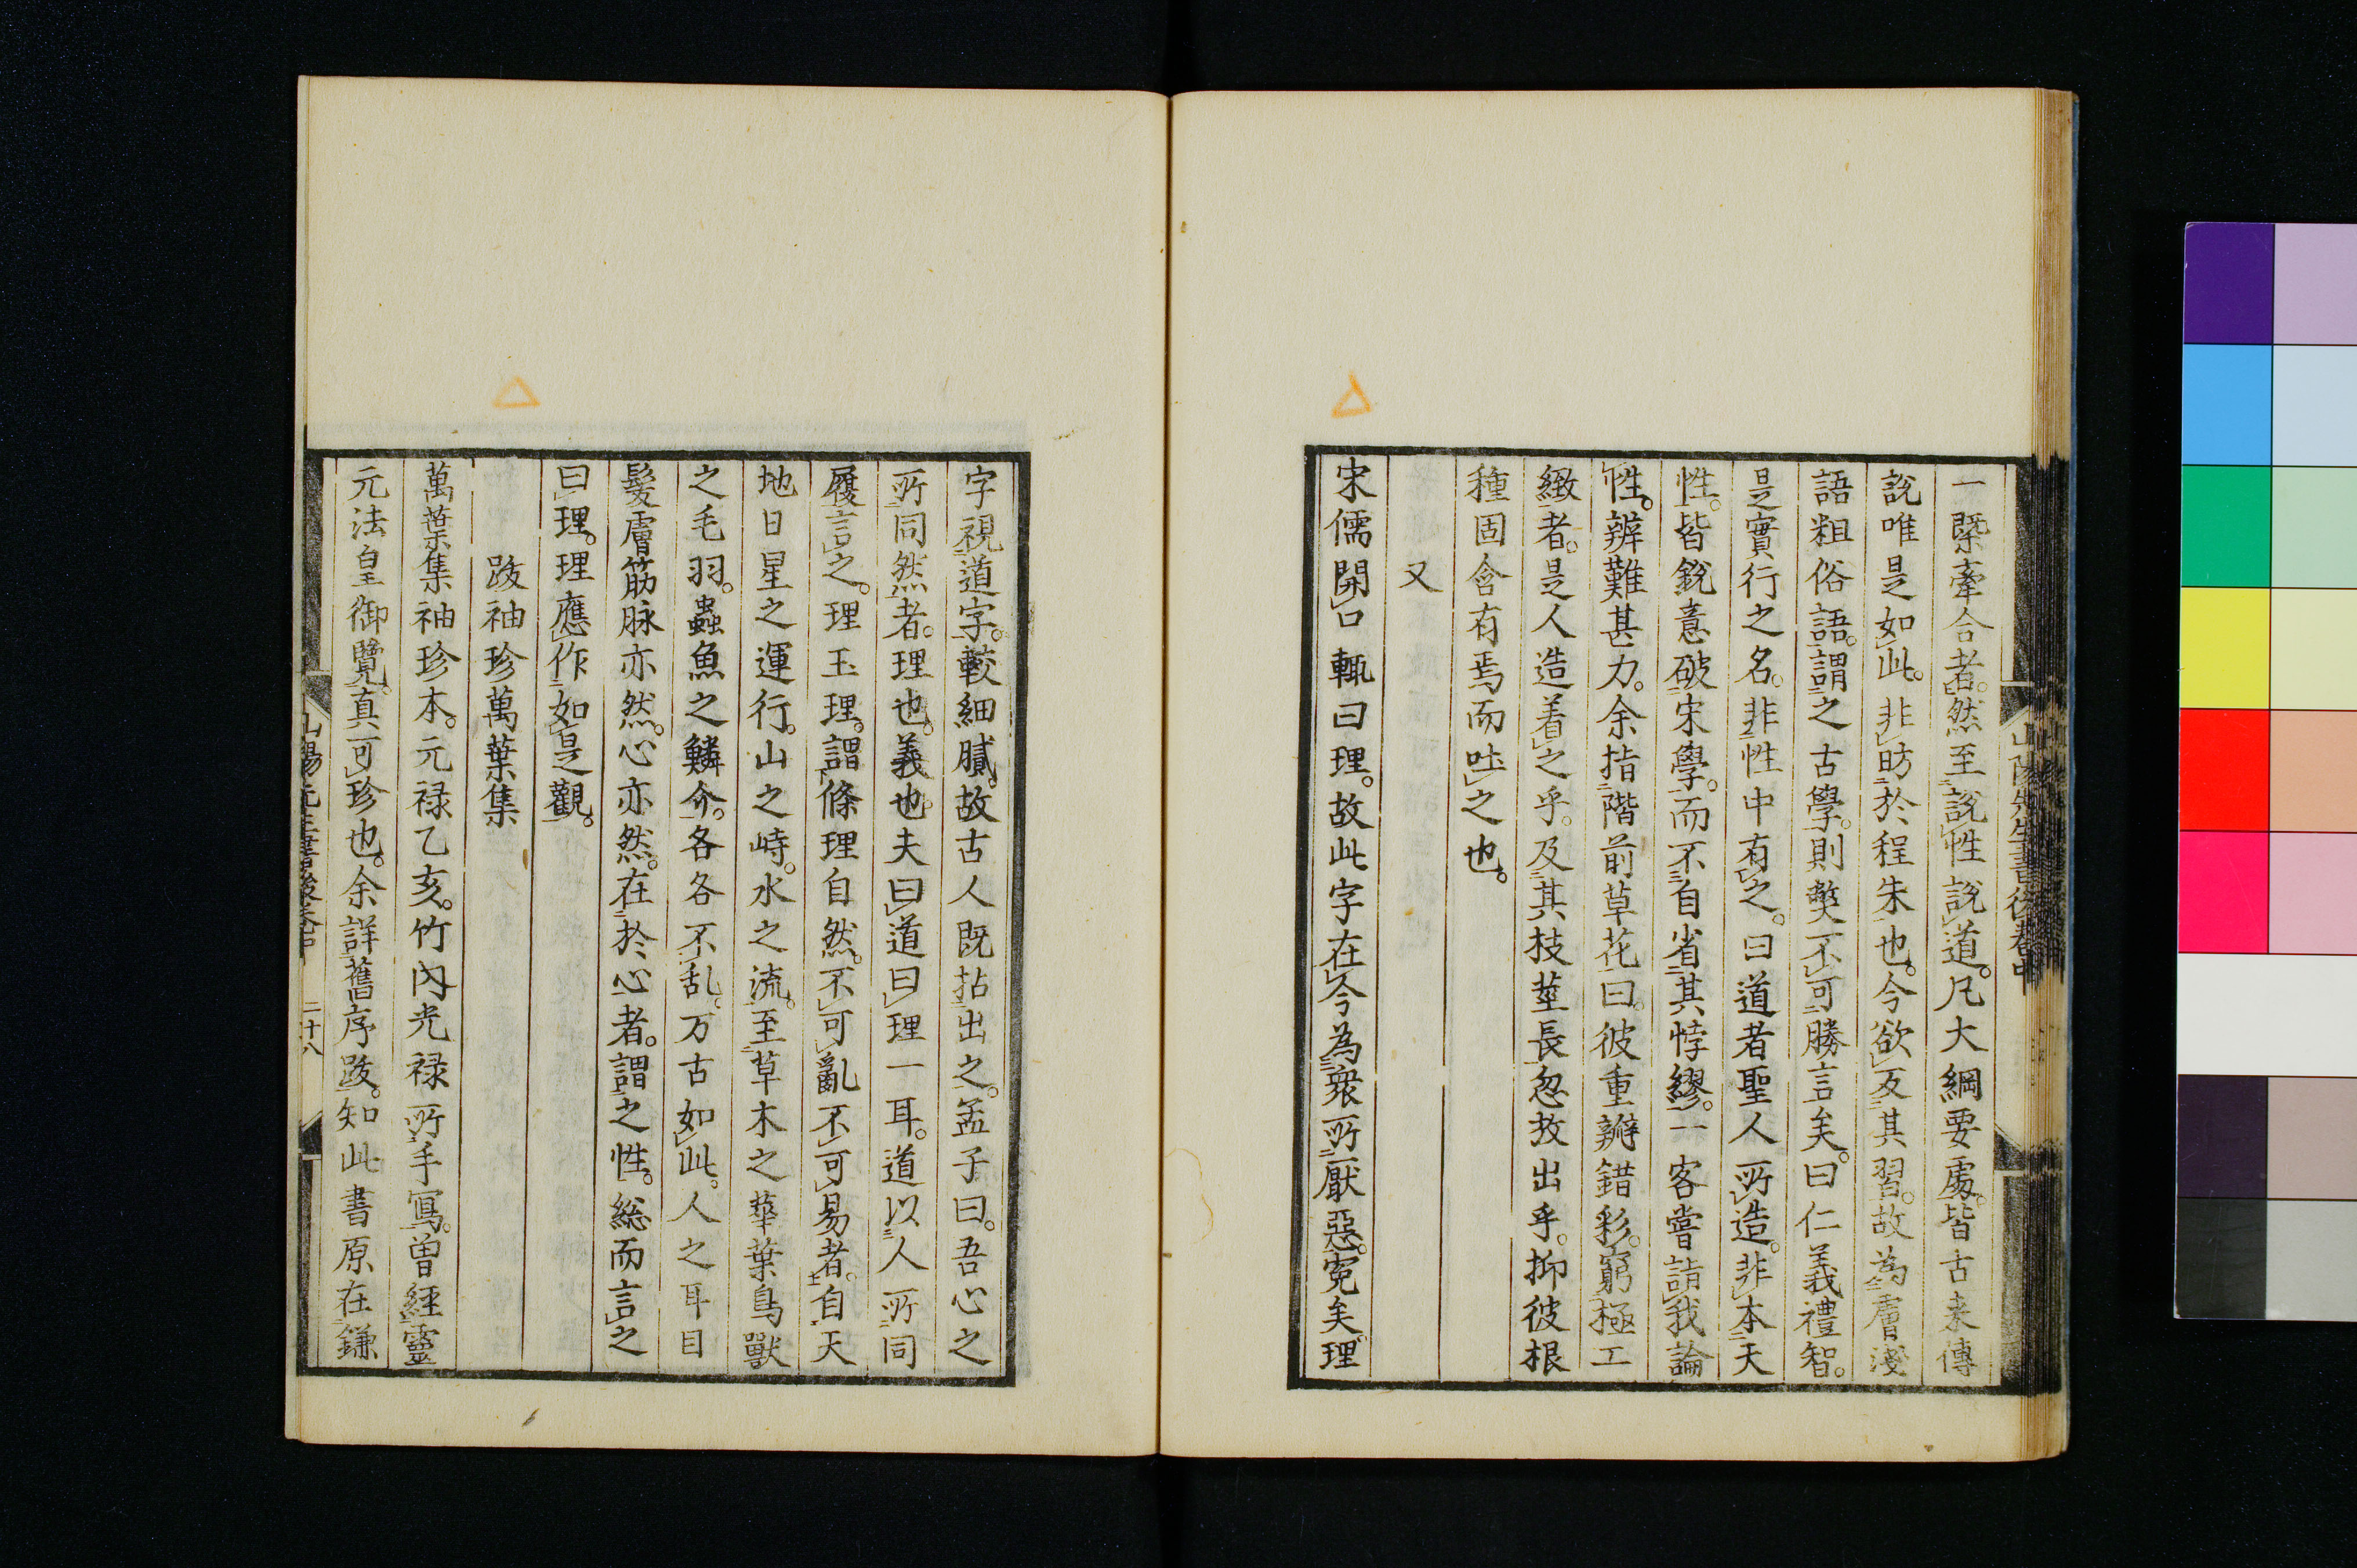 一槩牽合者。然至說性說道。凡大綱要處。皆古来傳
說唯是如此。非昉於程朱也。今欲反其習。故為膚淺
語粗俗語。謂之古學。則獘不可勝言矣。曰仁義禮智。
是實行之名。非性中有之。曰道者聖人所造。非本天
性。皆銳意破宋學。而不自省其悖繆。一客嘗詰我論
性。辨難甚力。余指階前草花曰。彼重瓣錯彩。窮極工
緻者。是人造着之乎。及其枝莖長忽放出乎。抑彼根
種固含有焉而吐之也。
又
宋儒開口輙曰理。故此字在今為衆所厭惡。寃矣。理
字視道字。較細膩。故古人既拈出之。孟子曰。吾心之
所同然者。理也。義也夫曰道曰理一耳。道以人所同
履言之。理玉理。謂條理自然。不可亂不可易者。自天
地日星之運行。山之峙。水之流。至草木之華葉鳥獸
之毛羽。蟲魚之鱗介。各各不乱。万古如此。人之耳目
髮膚筋脉亦然。心亦然。在於心者。謂之性。総而言之
曰理。理應作如是觀。
跋袖珍萬葉集
萬葉集袖珍本。元禄乙亥。竹內光禄所手寫。曽經靈
元法皇御覽。真可珍也。余詳舊序跋。知此書原在鎌
山陽先生書後卷中 二十八